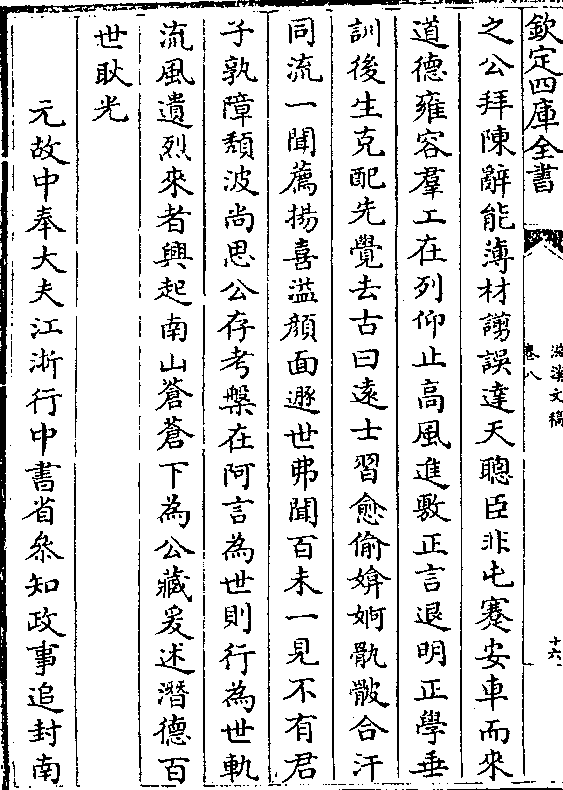 欽定四庫全書
滋溪文稿
卷八
十六
之公拜陳辭能薄材謭誤達天聰臣非屯蹇安車而來
道德雍容羣工在列仰止高風進敷正言退明正學垂
訓後生克配先覺去古曰逺士習愈偷媕婀骩骳合汗
同流一聞薦揚喜溢顔面遯世弗聞百未一見不有君
子孰障頽波尚思公存考槃在阿言為世則行為世軌
流風遺烈來者興起南山蒼蒼下為公藏爰述潛德百
世耿光
元故中奉大夫江浙行中書省叅知政事追封南